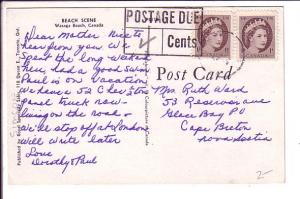 BEACH SCENE
Wasaga Beach, Canada
POSTAGE DUE
Cents
Post Card
Dear Mother Nice to
hear from you. We
spent the long weekend
here, had a good swim
Paul is on vacation
We have a 52 Chev ton
panel truck now-
living on the road -
we'll stop off at London
will write later
Love
Dorothy & Paul
Mrs Ruth Ward
53 Reserve ave
Glace Bay PO
Cape Breton
nova Scotia
2-